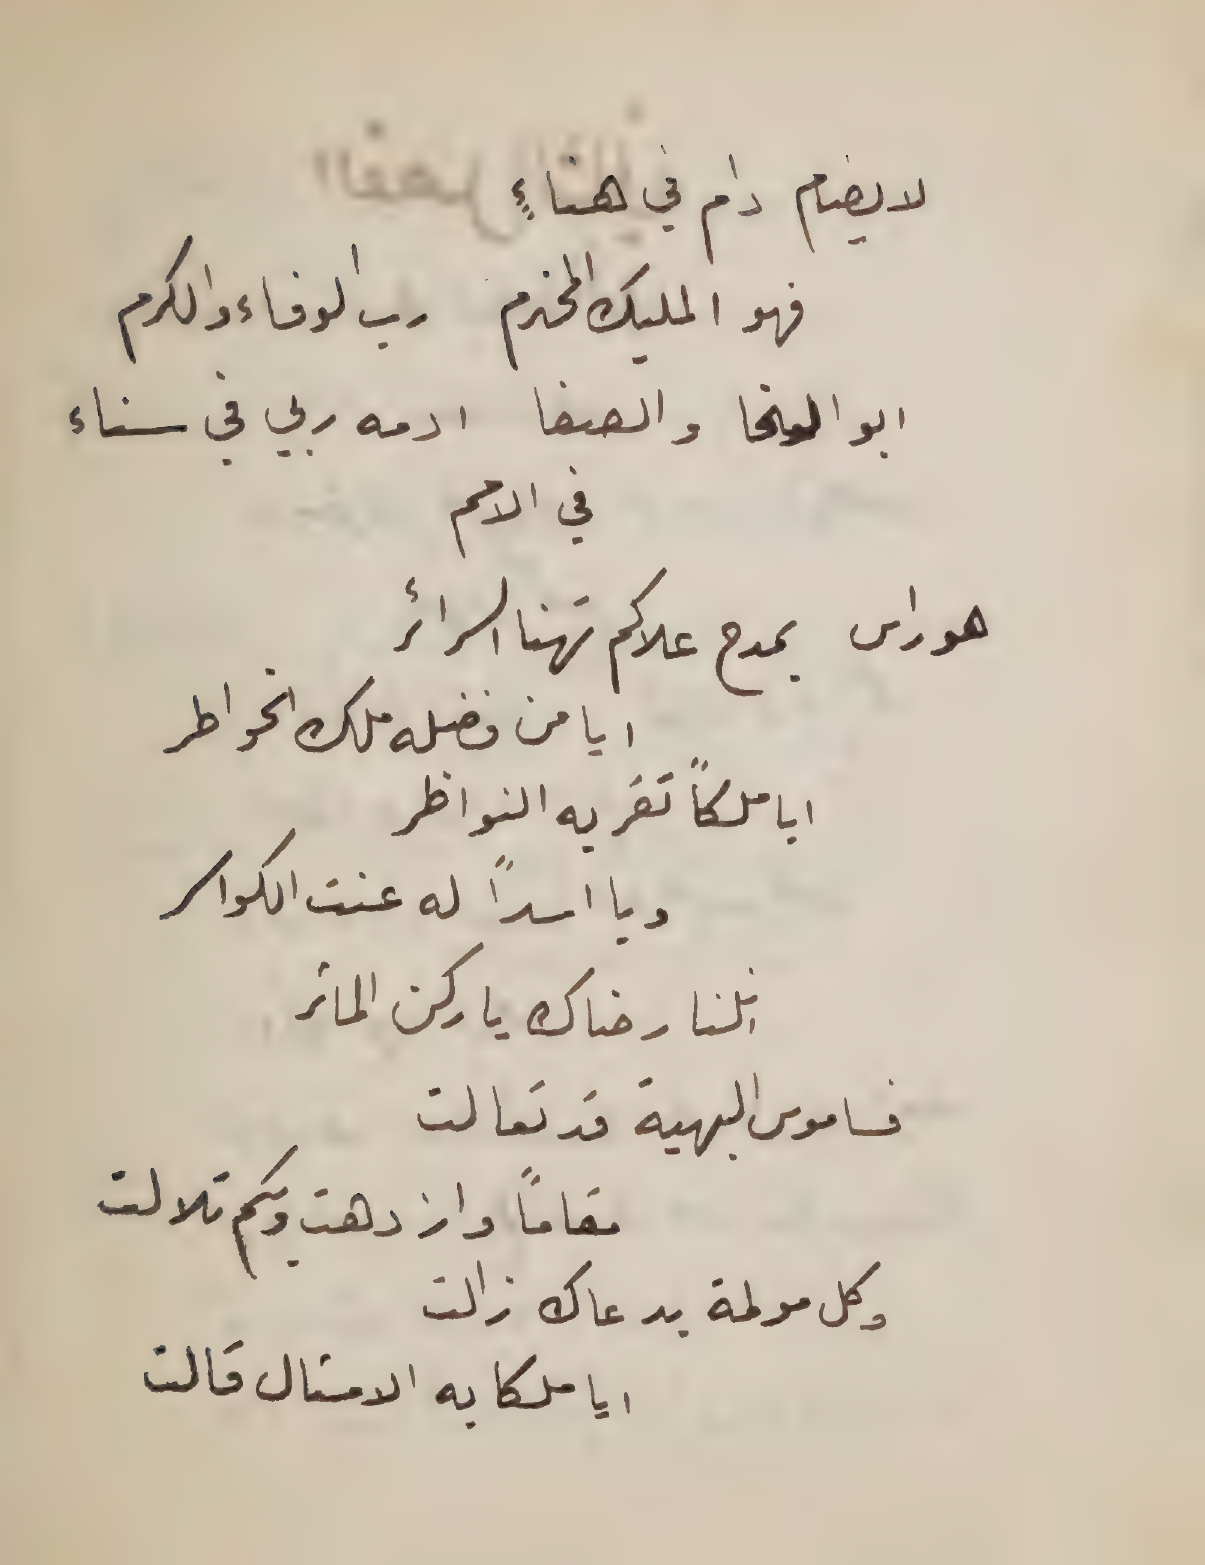 لا يضام دام في هناءٍ
فهو المليك المخدم رب الوفاء والكرم
ابو والصفا ادمه ربي في سناء
في الامم
هوراس بمدح علاكم تهنا السرائر
ايا من فضله ملك الخواطر
ايا ملكاً تقر به النواظر
ويا اسداً له عنت الكواسر
انلنا رضاك يا ركن المائر
قاموس البهية قد تعالت
مقاماً وازدهت وبكم تلالت
وكل مولمة بدعاك زالت
ايا ملكا به الامثال قالت